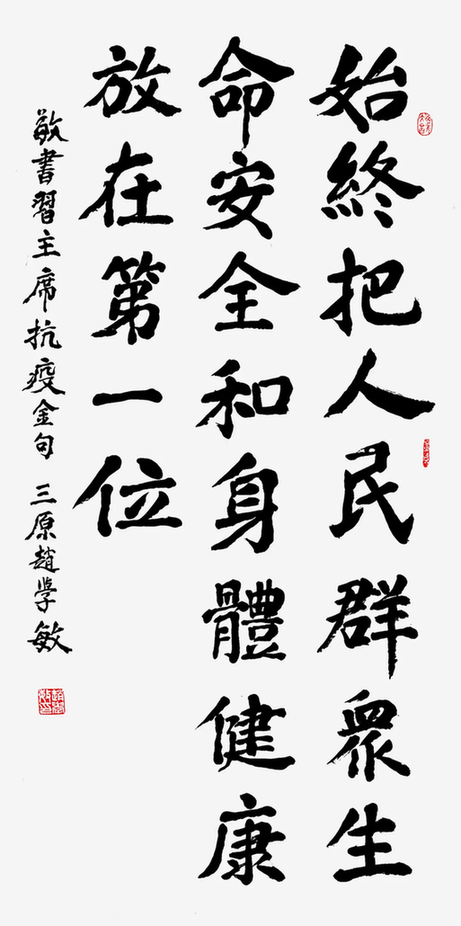 始終把人民群眾生
命安全和身體健康
放在第一位
敬書習主席抗疫金句 三原趙学敏